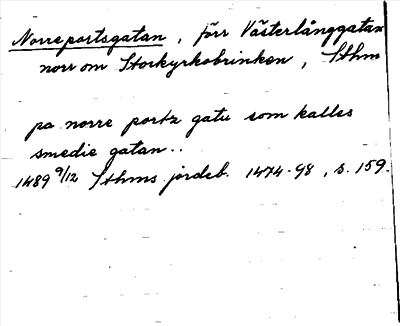 Norreportsgatan, förr Västerlånggatan
norr om Storkyrkobrinken, Sthm
pa norre portz gatu som kalles
smedie gatan..
1489 9/12 Sthms jordeb. 1474-98, s. 159.